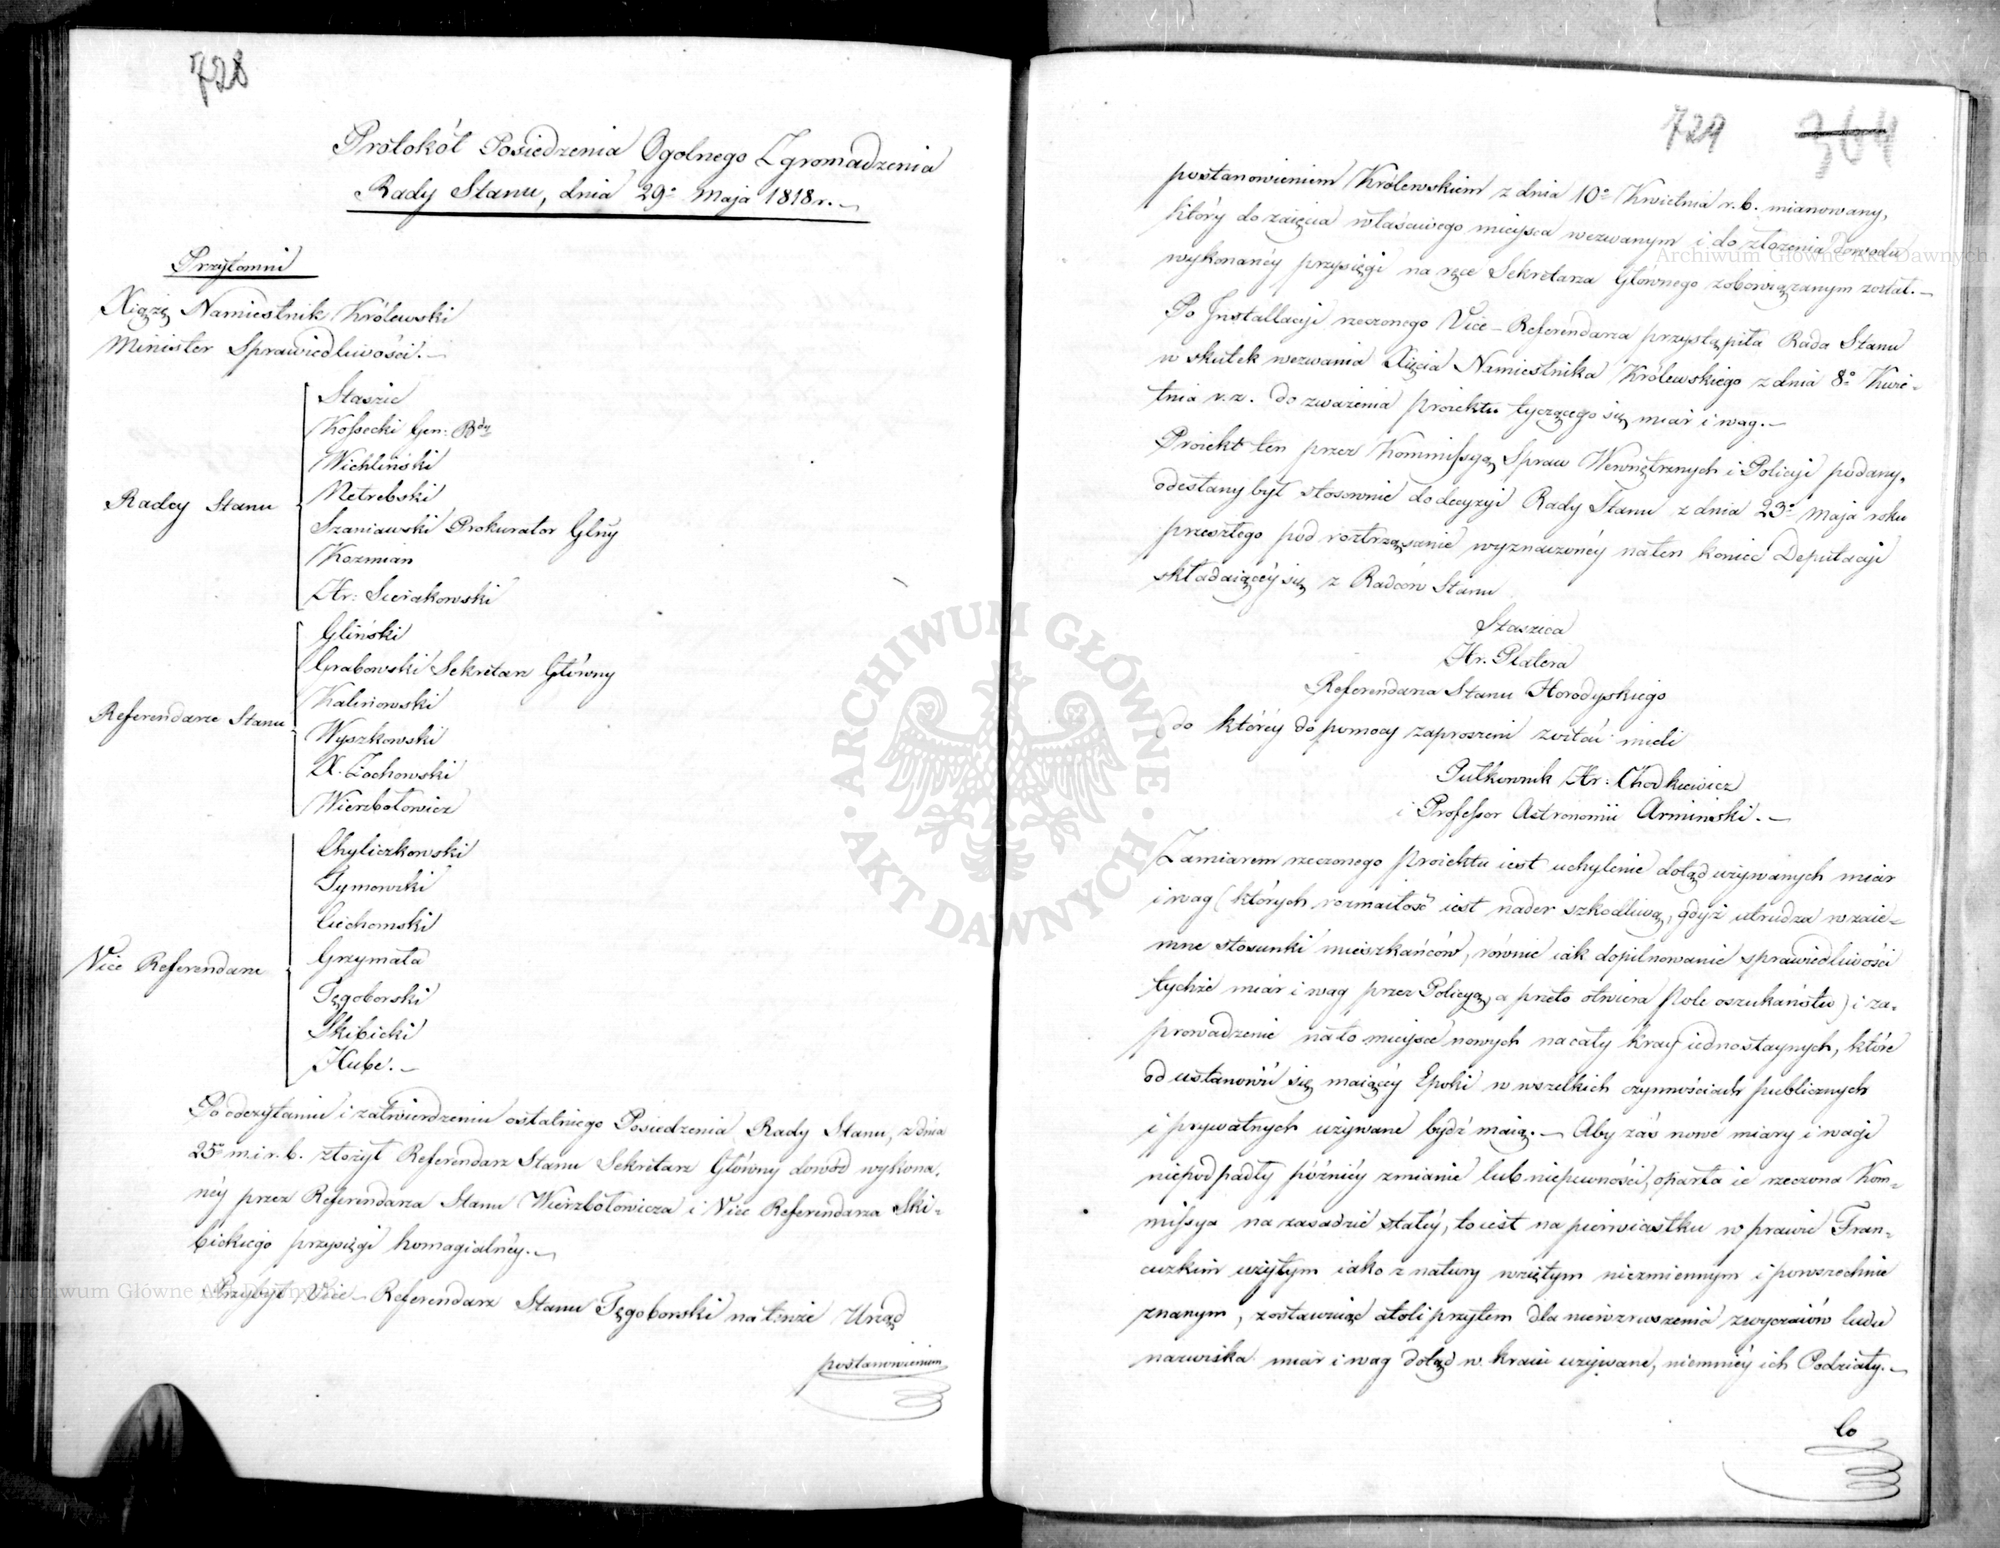 728
Protokół Posiedzenia Ogolnego Zgromadzenia
Rady Stanu, dnia 29º Maja 1818 r.
Przytomni
Xiążę Namiestnik Królewski
Minister Sprawiedliwości.
Radcy Stanu
Staszic
Kossecki Gen: Bdy
Wichliński
Netrebski
Szaniawski Prokurator Glny
Kozmian
Hr: Sierakowski
Referendarze Stanu
Gliński
Grabowski Sekretarz Główny
Kalinowski
Wyszkowski
X. Żochowski
Wierzbołowicz
Vice Referendarze
Chyliczkowski
Tymowski
Ciechomski
Grzymała
Tęgoborski
Skibicki
Hube.
Po odczytaniu i zatwierdzeniu ostatniego Posiedzenia Rady Stanu, z dnia
25º m. i r. b. złożył Referendarz Stanu Sekretarz Główny dowód wykona-
néy przez Referendarza Stanu Wierzbołowicza i Vice Referendarza Ski-
bickiego przysięgi homagialnéy.
Przybył Vice-Referendarz Stanu Tęgoborski na tenże Urząd
postanowieniem
729 364
postanowieniem Królewskiem z dnia 10º Kwietnia r. b. mianowany,
który do zaięcia właściwego mieysca wezwanym i do złożenia Dowodu
wykonanéy przysięgi na ręce Sekretarza Głównego zobowiązanym został.
Po Installacji rzeczonego Vice-Referendarza przystąpiła Rada Stanu
w skutek wezwania Xięcia Namiestnika Królewskiego z dnia 8º Kwie-
tnia r. z. do zważenia proiektu tyczącego się miar i wag.
Proiekt ten przez Kommissyą Spraw Wewnętrznych i Policyi podany,
odesłany był stosownie do decyzyi Rady Stanu z dnia 23º Maja roku
przeszłego pod roztrząsanie wyznaczonéy na ten koniec Deputacji
składaiącéy się z Radców Stanu
Staszica
Hr. Platera
Referendarza Stanu Horodyskiego
do któréy do pomocy zaproszeni zostać mieli
Pułkownik Hr: Chodkiewicz
i Professor Astronomii Armiński.
Zamiarem rzeczonego Proiektu iest uchylenie dotąd używanych miar
i wag (których rozmaitość iest nader szkodliwą, gdyż utrudza wzaie-
mne stosunki mieszkańców, równie iak dopilnowanie sprawiedliwości
tychże miar i wag przez Policyą, a przeto otwiera Pole oszukaństw) i za-
prowadzenie na to mieysce nowych na cały kray iednostaynych, które
od ustanowić się maiącéy Epoki w wszelkich czynnościach publicznych
i prywatnych używane bydź maią. Aby zaś nowe miary i wagi
niepodpadły późniéy zmianie lub niepewności, oparła ie rzeczona Kom-
missya na zasadzie stałéy, to iest na pierwiastku w prawie Fran-
cuzkim użytym iako z natury wziętym niezmiennym i powszechnie
znanym, zostawuiąc atoli przytem dla niewzruszenia zwyczaiów ludu
nazwiska miar i wag dotąd w kraiu używane, niemniéy ich Podziały.
Co
ARCHIWUM GŁÓWNE AKT DAWNYCH
Archiwum Główne Akt Dawnych
Archiwum Główne Akt Dawnych